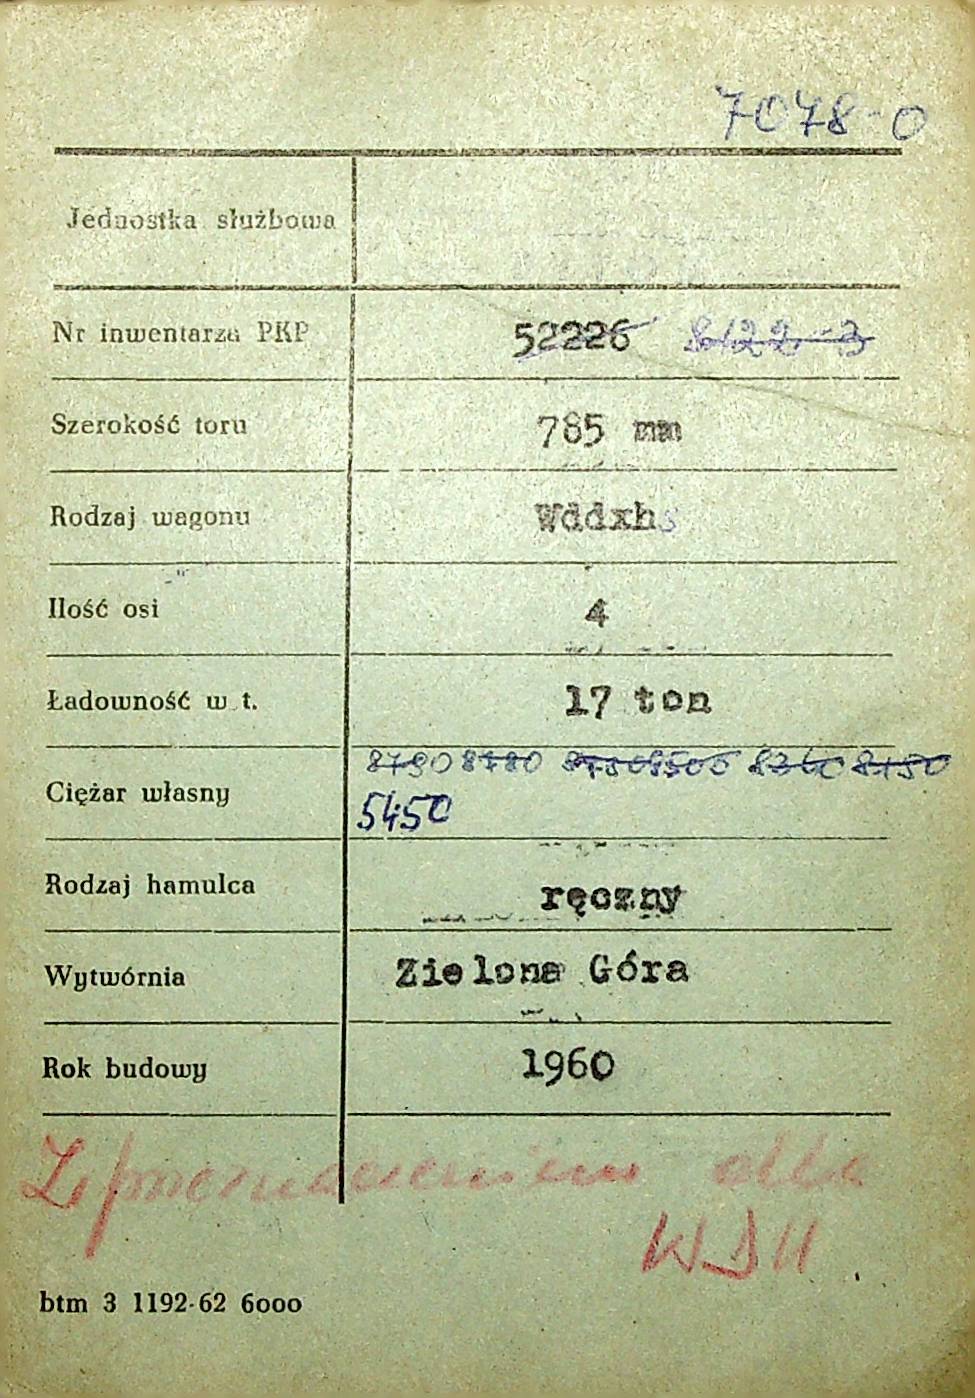 7078-0
Jednostka służbowa
Nr inwentarza PKP 52226 8122-3
Szerokość toru 785 mm
Rodzaj wagonu Wddxhs
Ilość osi 4
Ładowność w t. 17 ton
8790 8780 8500 8150
Ciężar własny 5450
Rodzaj hamulca ręczny
Wytwórnia Zielona Góra
Rok budowy 1960
Z przeznaczeniem dla
WDH
btm 3 1192-62 6000